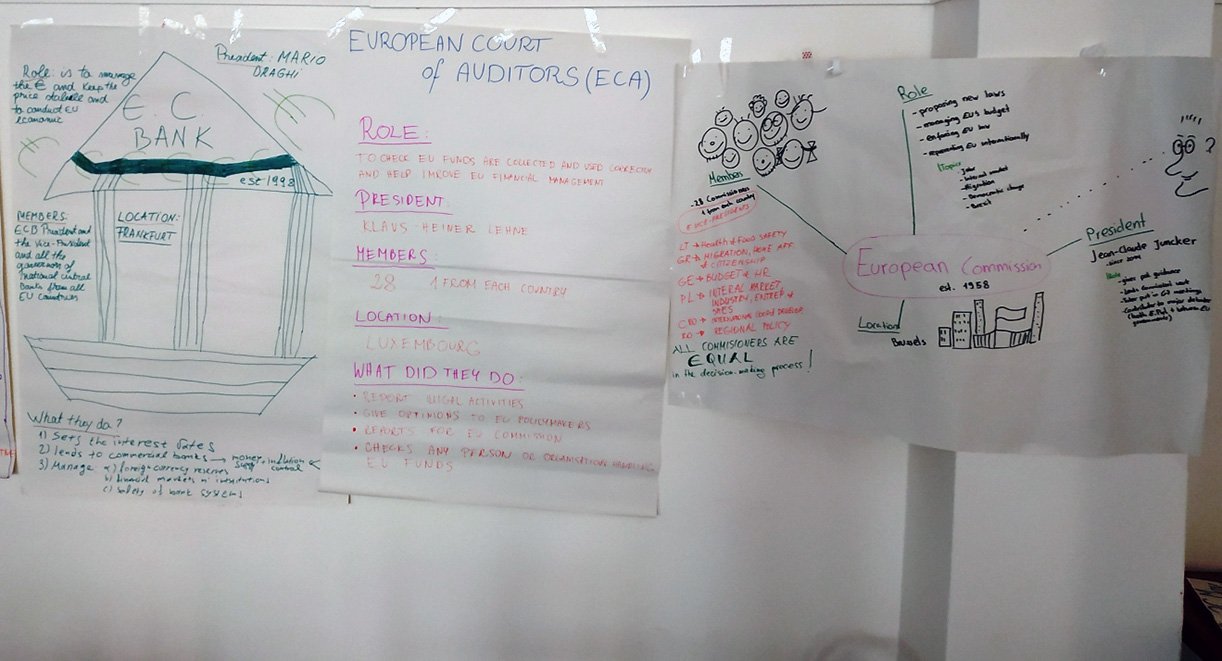 President: MARIO
DRAGHI
Role: is to manage
the € and keep the
price stabile and
to conduct EU
economic
E. C.
BANK
est 1998
MEMBERS:
ECB President and
the Vice-President
and all the
governors of
national central
Banks from all
EU countries
LOCATION:
FRANKFURT
What they do?
1) Sets the interest rates
2) lends to commercial banks → money supply + inflation control
3) Manage a) foreign currency reserves
b) financial markets n' institutions
c) Safety of bank systems
EUROPEAN COURT
of AUDITORS (ECA)
ROLE:
TO CHECK EU FUNDS ARE COLLECTED AND USED CORRECTLY
AND HELP IMROVE EU FINANCIAL MANAGEMENT
PRESIDENT
KLAUS HEINER LEHNE
MEMBERS:
28 1 FROM EACH COUNTRY
LOCATION:
LUXEMBOURG
WHAT DID THEY DO:
• REPORT ILLEGAL ACTIVITIES
• GIVE OPTINIONS TO EU POLICYMAKERS
• REPORTS FOR EU COMMISSION
• CHECKS ANY PERSON OR ORGANISATION HANDLING
EU FUNDS
Members
- 28 Commissioners
1 from each country
VICE-PRESIDENTS
LT → Health & FOOD SAFETY
GR → MIGRATION, HOME AFF.
& CITIZENSHIP
GE → BUDGET & HR
PL → INTERAL MARKET,
INDUSTRY, ENTREP &
SMES
CRO → INTERNATIONAL COOP & DEVELOP.
RO → REGIONAL POLICY
ALL COMMISIONERS ARE
EQUAL
in the decision-making process!
Role
- proposing new laws
- managing EU's budget
- enforcing EU law
- representing EU internationally
Topics:
- jobs
- internal market
- Migration
- Democratic change
- Brexit
European Commission
est. 1958
Location
Brussels
?
President
Jean-Claude Juncker
- since 2014
Role
- gives pol. guidance
- leads Commission's work
- takes part in G7 meetings
- contributes to major debates
(both E.Parl + between EU
governments)